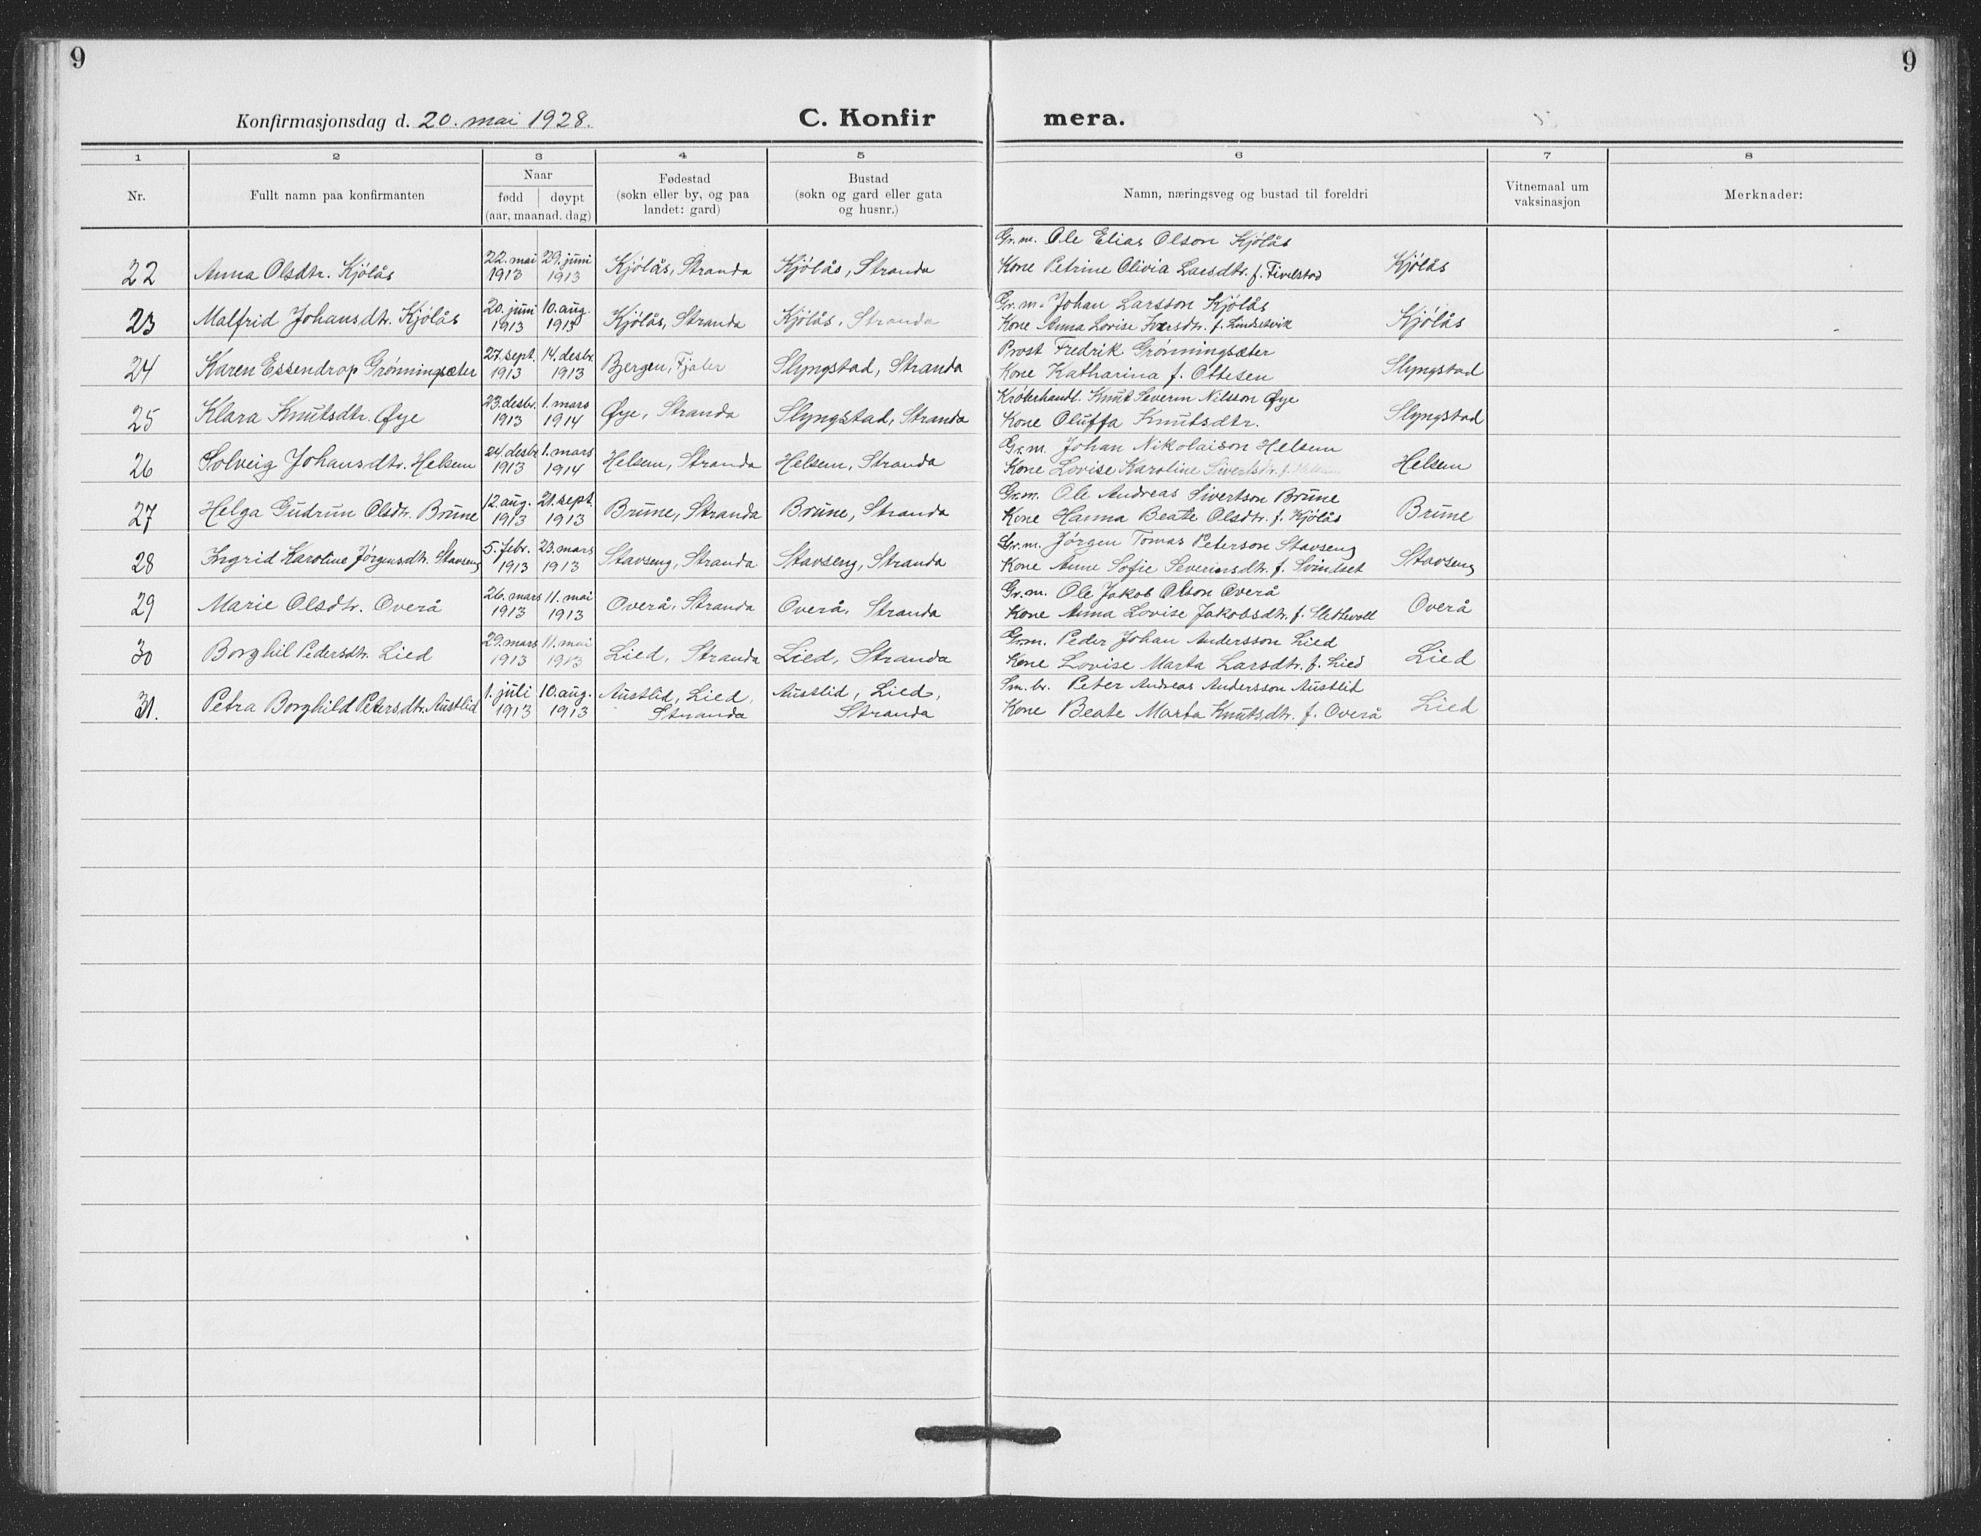 9
9
Konfirmasjonsdag d. 20. mai 1928.
C. Konfir mera.
1 2 3 4 5 6 7 8
Nr. Fullt namn paa konfirmanten Naar født døypt (aar, maanad. dag) Fødestad (sokn eller by, og paa landet: gard) Bustad (sokn og gard eller gata og husnr.) Namn, næringsveg og bustad til foreldri Vitnemaal um vaksinasjon Merknader:
22 Anna Olsdtr. Kjölås 22. mai 1913 29. juni 1913 Kjölås, Stranda Kjölås, Stranda Gr.m. Ole Elias Olson Kjölås
Kone Petrine Olivia Larsdtr. f. Fivelstad Kjölås
23 Malfrid Johansdtr. Kjölås 20. juni 1913 10. aug. 1913 Kjölås, Stranda Kjölås, Stranda Gr.m. Johan Larsson Kjölås
Kone Anna Lovise Iversdtr. f. Lindsetvik Kjölås
24 Karen Essendrop Grønningsæter 27. sept. 1913 14. desbr. 1913 Bjergen, Fjaler Slyngstad, Stranda Prost Fredrik Grønningsæter
Kone Katharina f. Ottesen Slyngstad
25 Klara Knutsdtr. Øye 23. desbr. 1913 1. mars 1914 Øye, Stranda Slyngstad, Stranda Krøterhandl. Knut Severin Nilsson Øye
Kone Oluffa Knutsdtr. Slyngstad
26 Solveig Johansdtr. Helsem 24. desbr 1913 1. mars 1914 Helsem, Stranda Helsem, Stranda Gr.m. Johan Nikolaison Helsem
Kone Lovise Karoline Sivertsdtr. f. Helsem
27 Helga Gudrun Olsdtr. Brune 12. aug. 1913 21. sept. 1913 Brune, Stranda Brune, Stranda Gr.m. Ole Andreas Sivertson Brune
Kone Hanna Beate Olsdtr. f. Kjölås Brune
28 Ingrid Karoline Jørgensdtr. Stavseng 5. febr. 1913 23. mars 1913 Stavseng, Stranda Stavseng, Stranda Gr.m. Jørgen Tomas Peterson Stavseng
Kone Anne Sofie Severinsdtr. f. Svindset Stavseng
29 Marie Olsdtr. Overå 26. mars 1913 11. mai 1913 Overå, Stranda Overå, Stranda Gr.m. Ole Jakob Olson Overå
Kone Anna Lovise Jakobsdtr. f. Slettevoll Overå
30 Borghil Pedersdtr. Lied 29. mars 1913 11. mai 1913 Lied, Stranda Lied, Stranda Gr.m. Peder Johan Andersson Lied
Kone Lovise Marta Larsdtr. f. Lied Lied
31. Petra Borghild Petersdtr. Austlid 1. juli 1913 10. aug. 1913 Austlid, Lied, Stranda Austlid, Lied, Stranda Sm.br. Peter Andreas Andersson Austlid
Kone Beate Marta Knutsdtr. f. Overå Lied